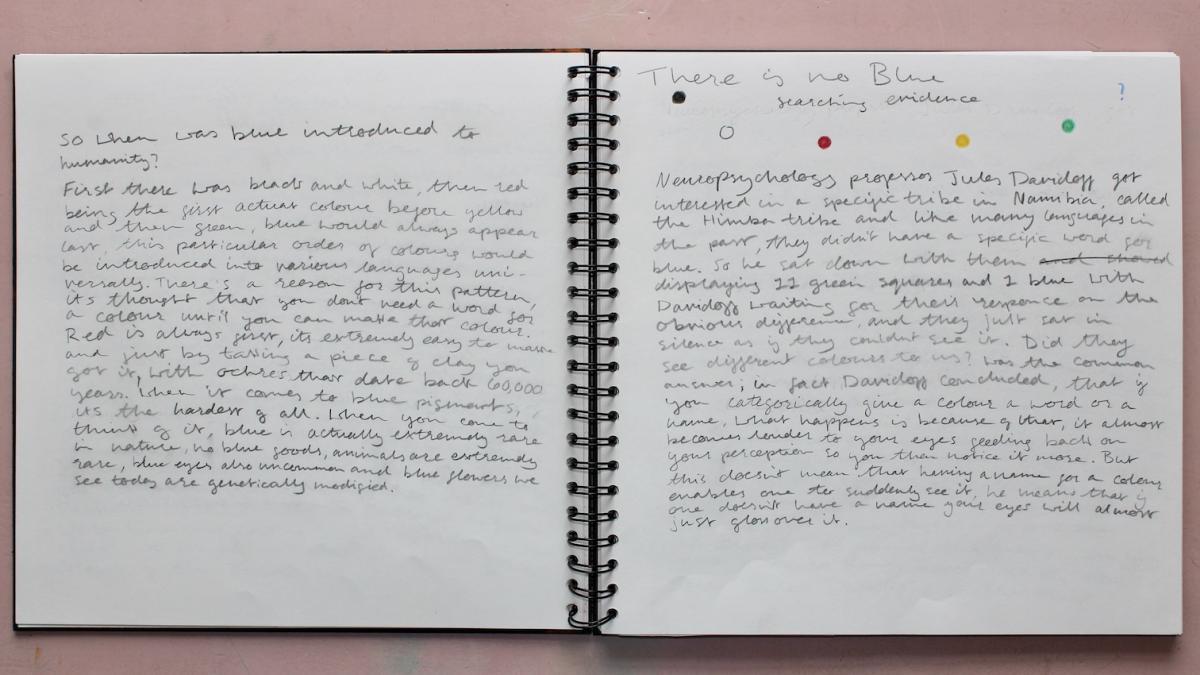 So when was blue introduced to
humanity?
First there was black and white, then red
being the first actual colour before yellow
and then green, blue would always appear
last, this particular order of colours would
be introduced into various languages uni-
versally. There's a reason for this pattern,
its thought that you don't need a word for
a colour until you can make that colour.
Red is always first, its extremely easy to make
and just by taking a piece of clay you
got it, with ochres that date back 60,000
years. When it comes to blue pigments,
its the hardest of all. When you come to
think of it, blue is actually extremely rare
in nature, no blue foods, animals are extremely
rare, blue eyes also uncommon and blue flowers we
see today are genetically modified.
There is no Blue
searching evidence
?
Neuropsychology professor Jules Davidoff got
interested in a specific tribe in Namibia, called
the Himba tribe and like many languages in
the past, they didn't have a specific word for
blue. So he sat down with them and showed
displaying 11 green squares and 1 blue with
Davidoff waiting for their responce on the
obvious difference, and they just sat in
silence as if they couldn't see it. Did they
see different colours to us? was the common
answer; in fact Davidoff concluded, that if
you categorically give a colour a word or a
name, what happens is because of that, it almost
becomes louder to your eyes feeding back on
your perception so you then notice it more. But
this doesn't mean that having a name for a colour
enables one to suddenly see it, he means that if
one doesn't have a name your eyes will almost
just gloss over it.